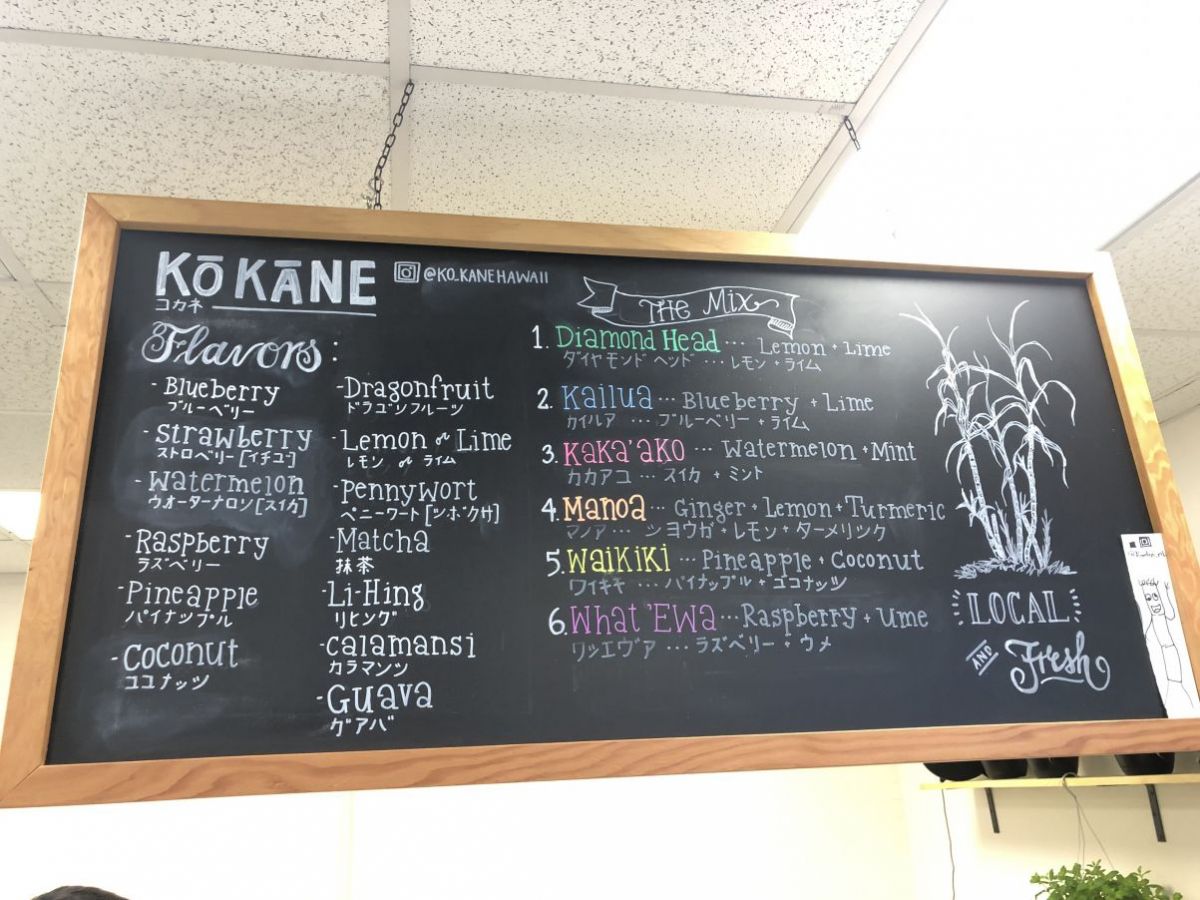 KŌ KĀNE
コカネ
@KO_KANEHAWAII
Flavors:
- Blueberry
ブルーベリー
- Strawberry
ストロベリー [イチゴ]
- Watermelon
ウオーターナロン [スイカ]
- Raspberry
ラズベリー
- Pineapple
パイナップル
- Coconut
ココナッツ
- Dragonfruit
ドラゴンフルーツ
- Lemon or Lime
レモン or ライム
- Pennywort
ペニーワート [ツボクサ]
- Matcha
抹茶
- Li-Hing
リヒング
- Calamansi
カラマンツ
- Guava
グアバ
The Mix
1. Diamond Head ... Lemon + Lime
ダイヤモンド ヘッド ... レモン + ライム
2. Kailua ... Blueberry + Lime
カイルア ... ブルーベリー + ライム
3. Kaka'ako ... Watermelon + Mint
カカアコ ... スイカ + ミント
4. Manoa ... Ginger + Lemon + Turmeric
マノア ... ショウガ + レモン + ターメリック
5. Waikiki ... Pineapple + Coconut
ワイキキ ... パイナップル + ココナッツ
6. What 'Ewa ... Raspberry + Ume
ワッエヴア ... ラズベリー + ウメ
LOCAL
AND
Fresh